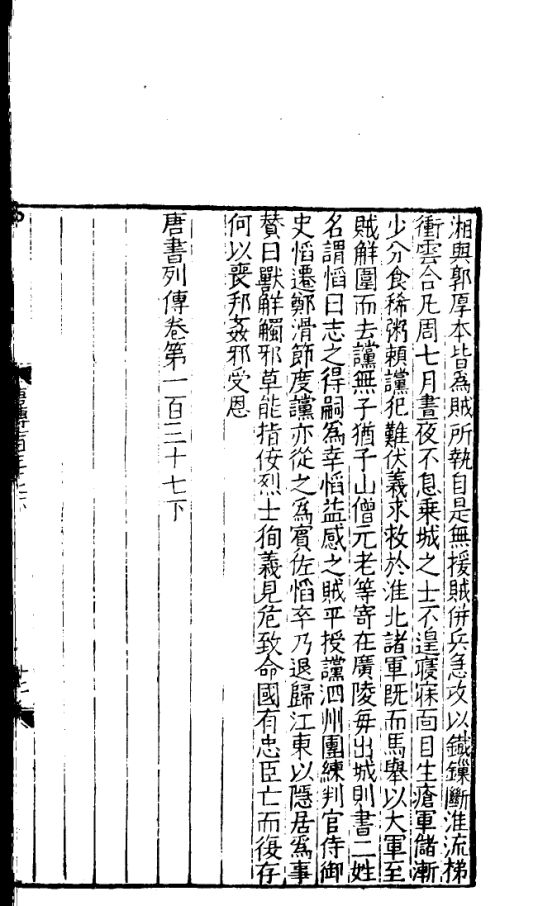 湘與郭厚本皆為賊所執自是無援賊併兵急攻以鐵鏁斷淮流梯
衝雲合凡周七月晝夜不息乗城之士不遑寢寐面目生瘡軍儲漸
少分食稀粥賴讜犯難伏義求救於淮北諸軍既而馬舉以大軍至
賊解圍而去讜無子猶子山僧元老等寄在廣陵毎出城則書二姓
名謂慆曰志之得嗣為幸慆益感之賊平授讜泗州團練判官侍御
史慆遷鄭滑節度讜亦從之為賓佐慆卒乃退歸江東以隱居為事
贊曰獸解觸邪草能指佞烈士徇義見危致命國有忠臣亡而復存
何以喪邦姦邪受恩
唐書列傳卷第一百三十七下